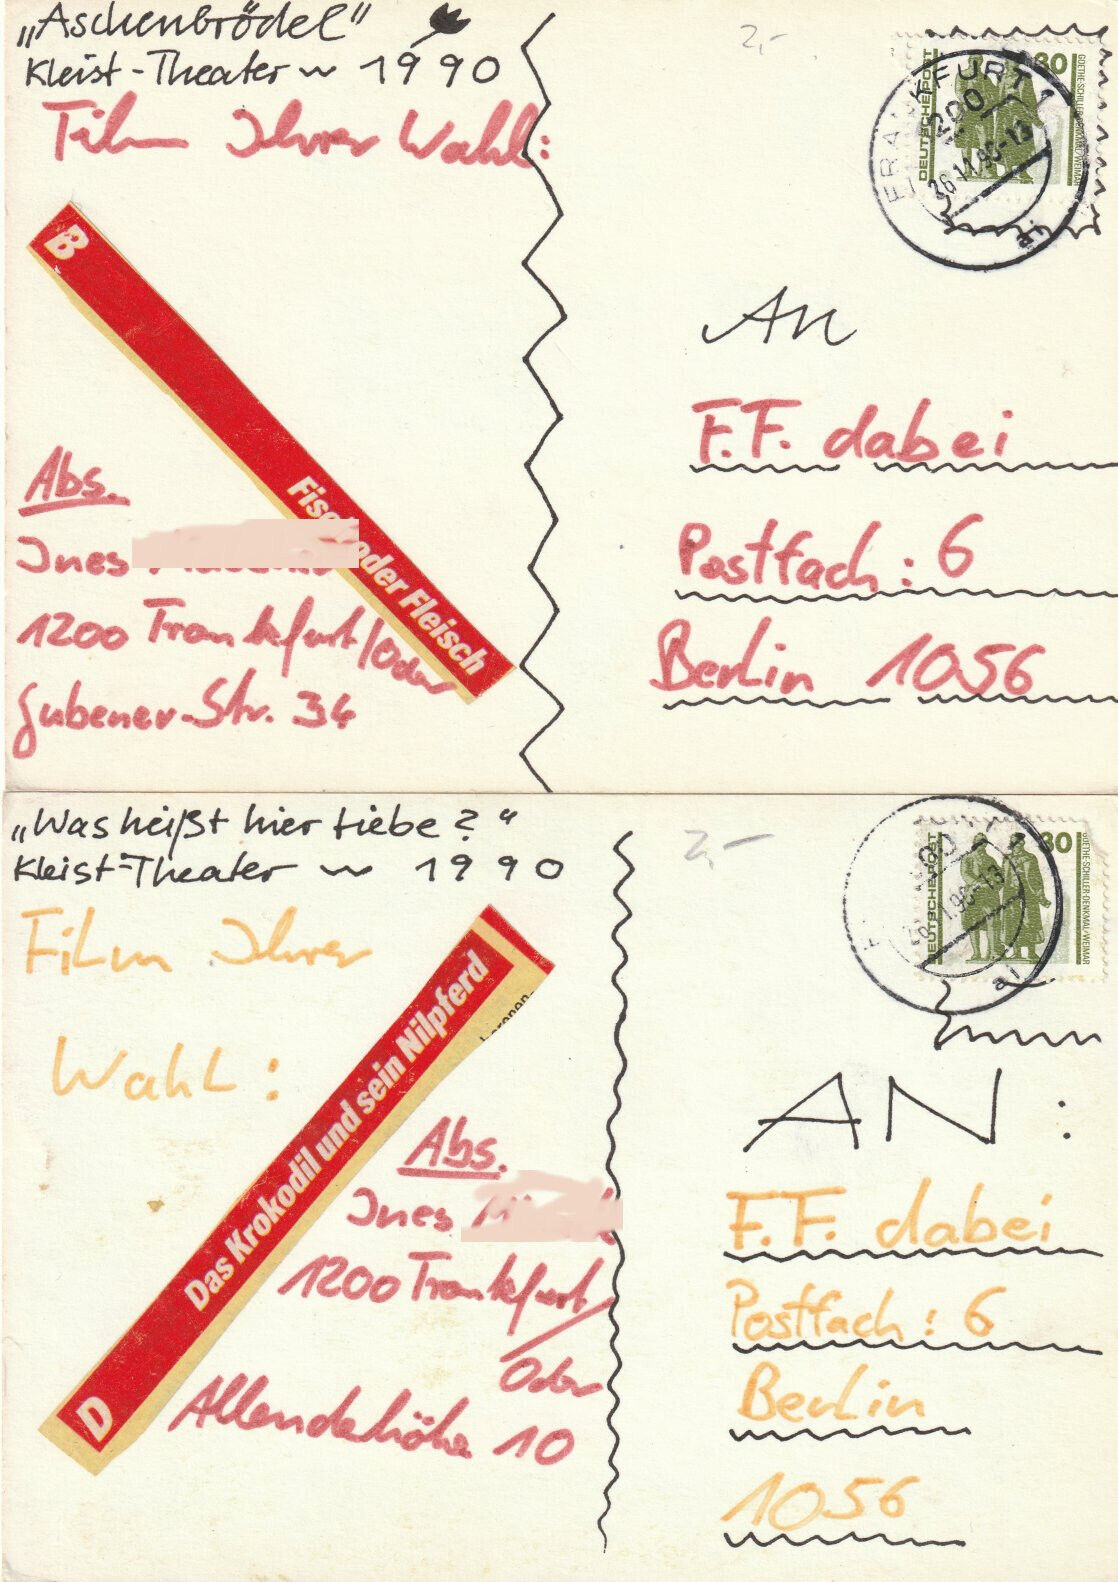 „Aschenbrödel"
Kleist-Theater ~ 1990
Film Ihrer Wahl:
B
Fisch oder Fleisch
Abs.
Ines
1200 Frankfurt/Oder
Gubener-Str. 34
2,-
DEUTSCHE POST
80
GOETHE-SCHILLER-DENKMAL/WEIMAR
FRANKFURT 1
1200
An
F.F. dabei
Postfach: 6
Berlin 1056
„Was heißt hier Liebe?"
Kleist-Theater ~ 1990
Film Ihrer
Wahl:
Das Krokodil und sein Nilpferd
D
Abs.
Ines
1200 Frankfurt/
Oder
Allendehöhe 10
2,-
DEUTSCHE POST
30
GOETHE-SCHILLER-DENKMAL/WEIMAR
AN:
F.F. dabei
Postfach: 6
Berlin
1056